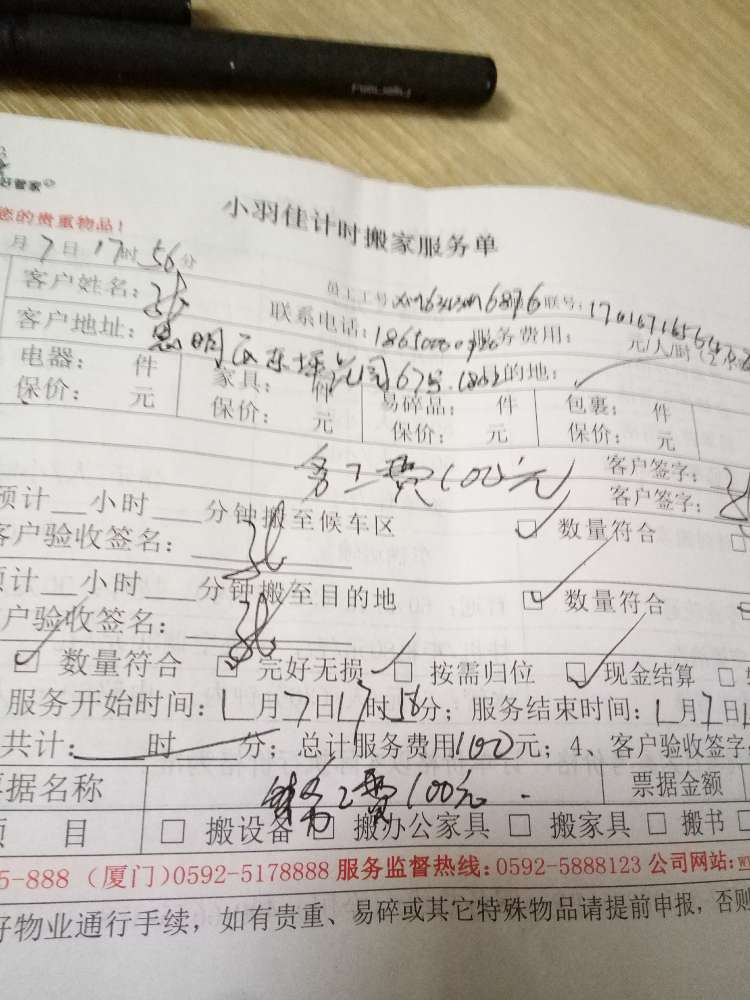 好管家
小羽佳计时搬家服务单
您的贵重物品!
月7日17时56分
员工工号 联号:
客户姓名: 联系电话: 服务费用: 元/人/时
客户地址:思明区 67号 的地:
电器: 件 家具: 件 易碎品: 件 包裹: 件
保价: 元 保价: 元 保价: 元 保价: 元
务工费100元 客户签字:
客户签字:
预计__小时____分钟搬至候车区 数量符合
客户验收签名:
预计__小时____分钟搬至目的地 数量符合
客户验收签名:
数量符合 完好无损 按需归位 现金结算
服务开始时间:1月7日17时58分;服务结束时间:1月7日1
共计: 时 分;总计服务费用100元;4、客户验收签字
票据名称 务工费100元. 票据金额
项 目 搬设备 搬办公家具 搬家具 搬书
5-888 (厦门)0592-5178888 服务监督热线:0592-5888123 公司网站:w
好物业通行手续,如有贵重、易碎或其它特殊物品请提前申报,否则